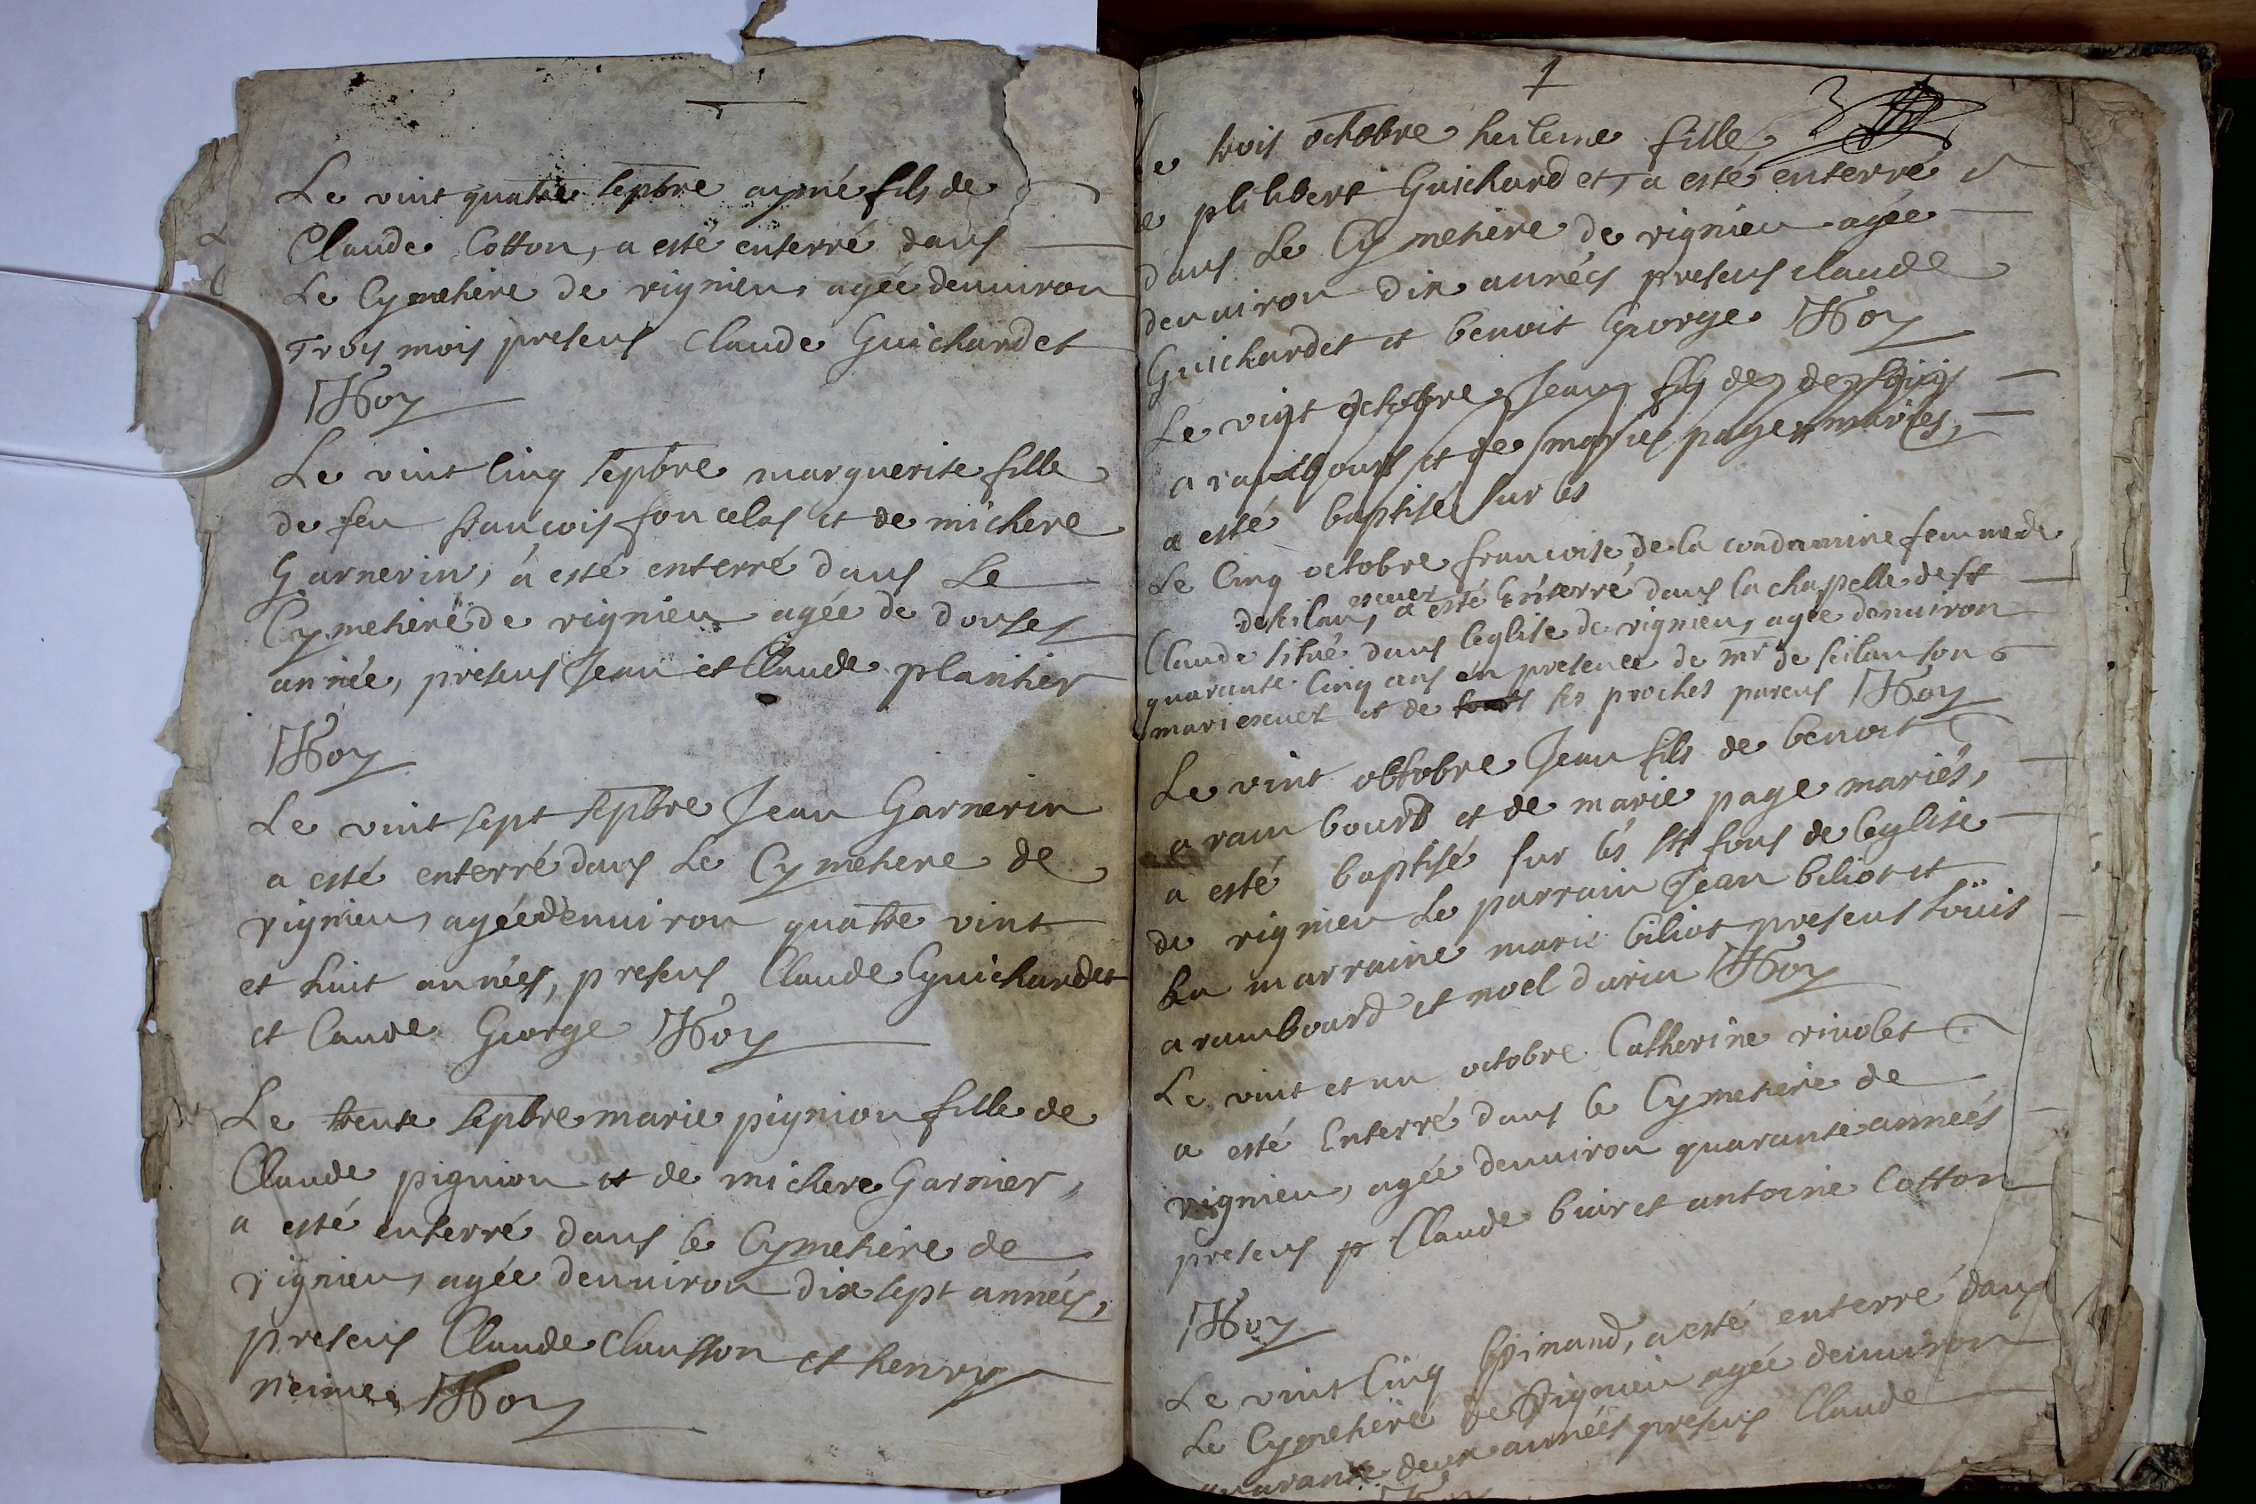 Le vint quatre sepbre aymé fils de
Claude Cotton, a esté enterré dans
Le Cymetiere de vignieu, agée denuiron
Troy mois presens Claude Guichardet
Roy
Le vint cinq sepbre marguerite fille
de feu francois foncelas et de michere
Garnerin, a esté enterré dans Le
Cymetiere de vignieu agée de douses
année, presens Jean et Claude plantier
Roy
Le vint sept sepbre Jean Garnerin
a esté enterré dans Le Cymetiere de
vignieu, agée denuiron quatre vint
et huit années, presens Claude Guichardet
et Caude George Roy
Le trente sepbre marie pignion fille de
Claude pignion et de michere Garnier,
a esté enterré dans le Cymetiere de
vignieu, agée denuiron dix sept années,
presens Claude Clausson et henry
neime Roy
1
3
Le trois octobre fille
de philibert Guichardet, a esté enterré
dans Le Cymetiere de vignieu agée
denuiron dix années presens claude
Guichardet et benoit George Roy
Le vint octobre Jean fils de
arambourd et de marie page maries,
a esté baptisé sur les
Le Cinq octobre francoise de la condamine femme de
escuer
de seilans, a esté enterré dans la chapelle de st
Claude situé dans leglise de vignieu, agée denuiron
quarante Cinq ans en presence de mr de seilan son
mari escuer et de ses proches parens Roy
Le vint obtobre Jean fils de benoit
arambourd et de marie page mariés,
a esté baptisé sur les sts fons de leglise
de vignieu Le parrain Jean biliot et
La marraine marie biliot presens louis
arambourd et noel durin Roy
Le vint et un octobre Catherine rivolet
a esté Enterré dans le Cymetiere de
vignieu, agée denuiron quarante années
presens p Claude buir et antoine Cotton
Roy
Le vint Cinq pinand, a esté enterré dans
Le Cymetiere de Vignieu agée denuiron
quarante deux années presens Claude